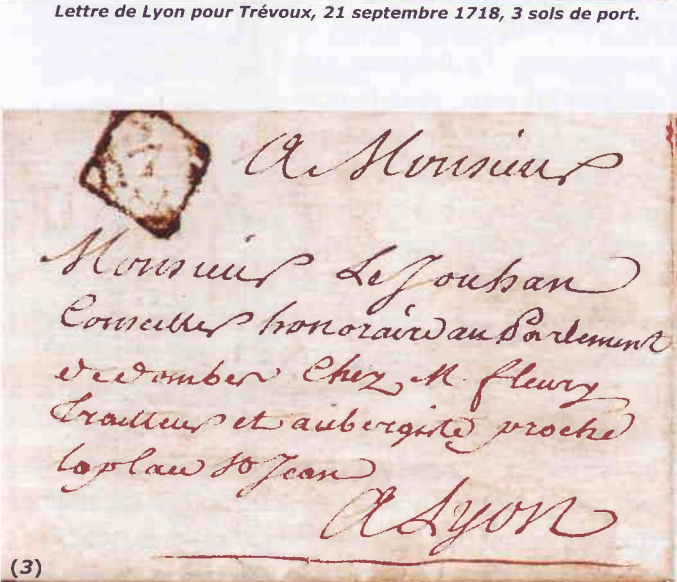 Lettre de Lyon pour Trévoux, 21 septembre 1718, 3 sols de port.
A Monsieur
Monsieur Le Jouhan
Conseiller honoraire au Parlement
de dombes Chez M. fleury
traitteur et aubergiste proche
la place St Jean
A Lyon
(3)